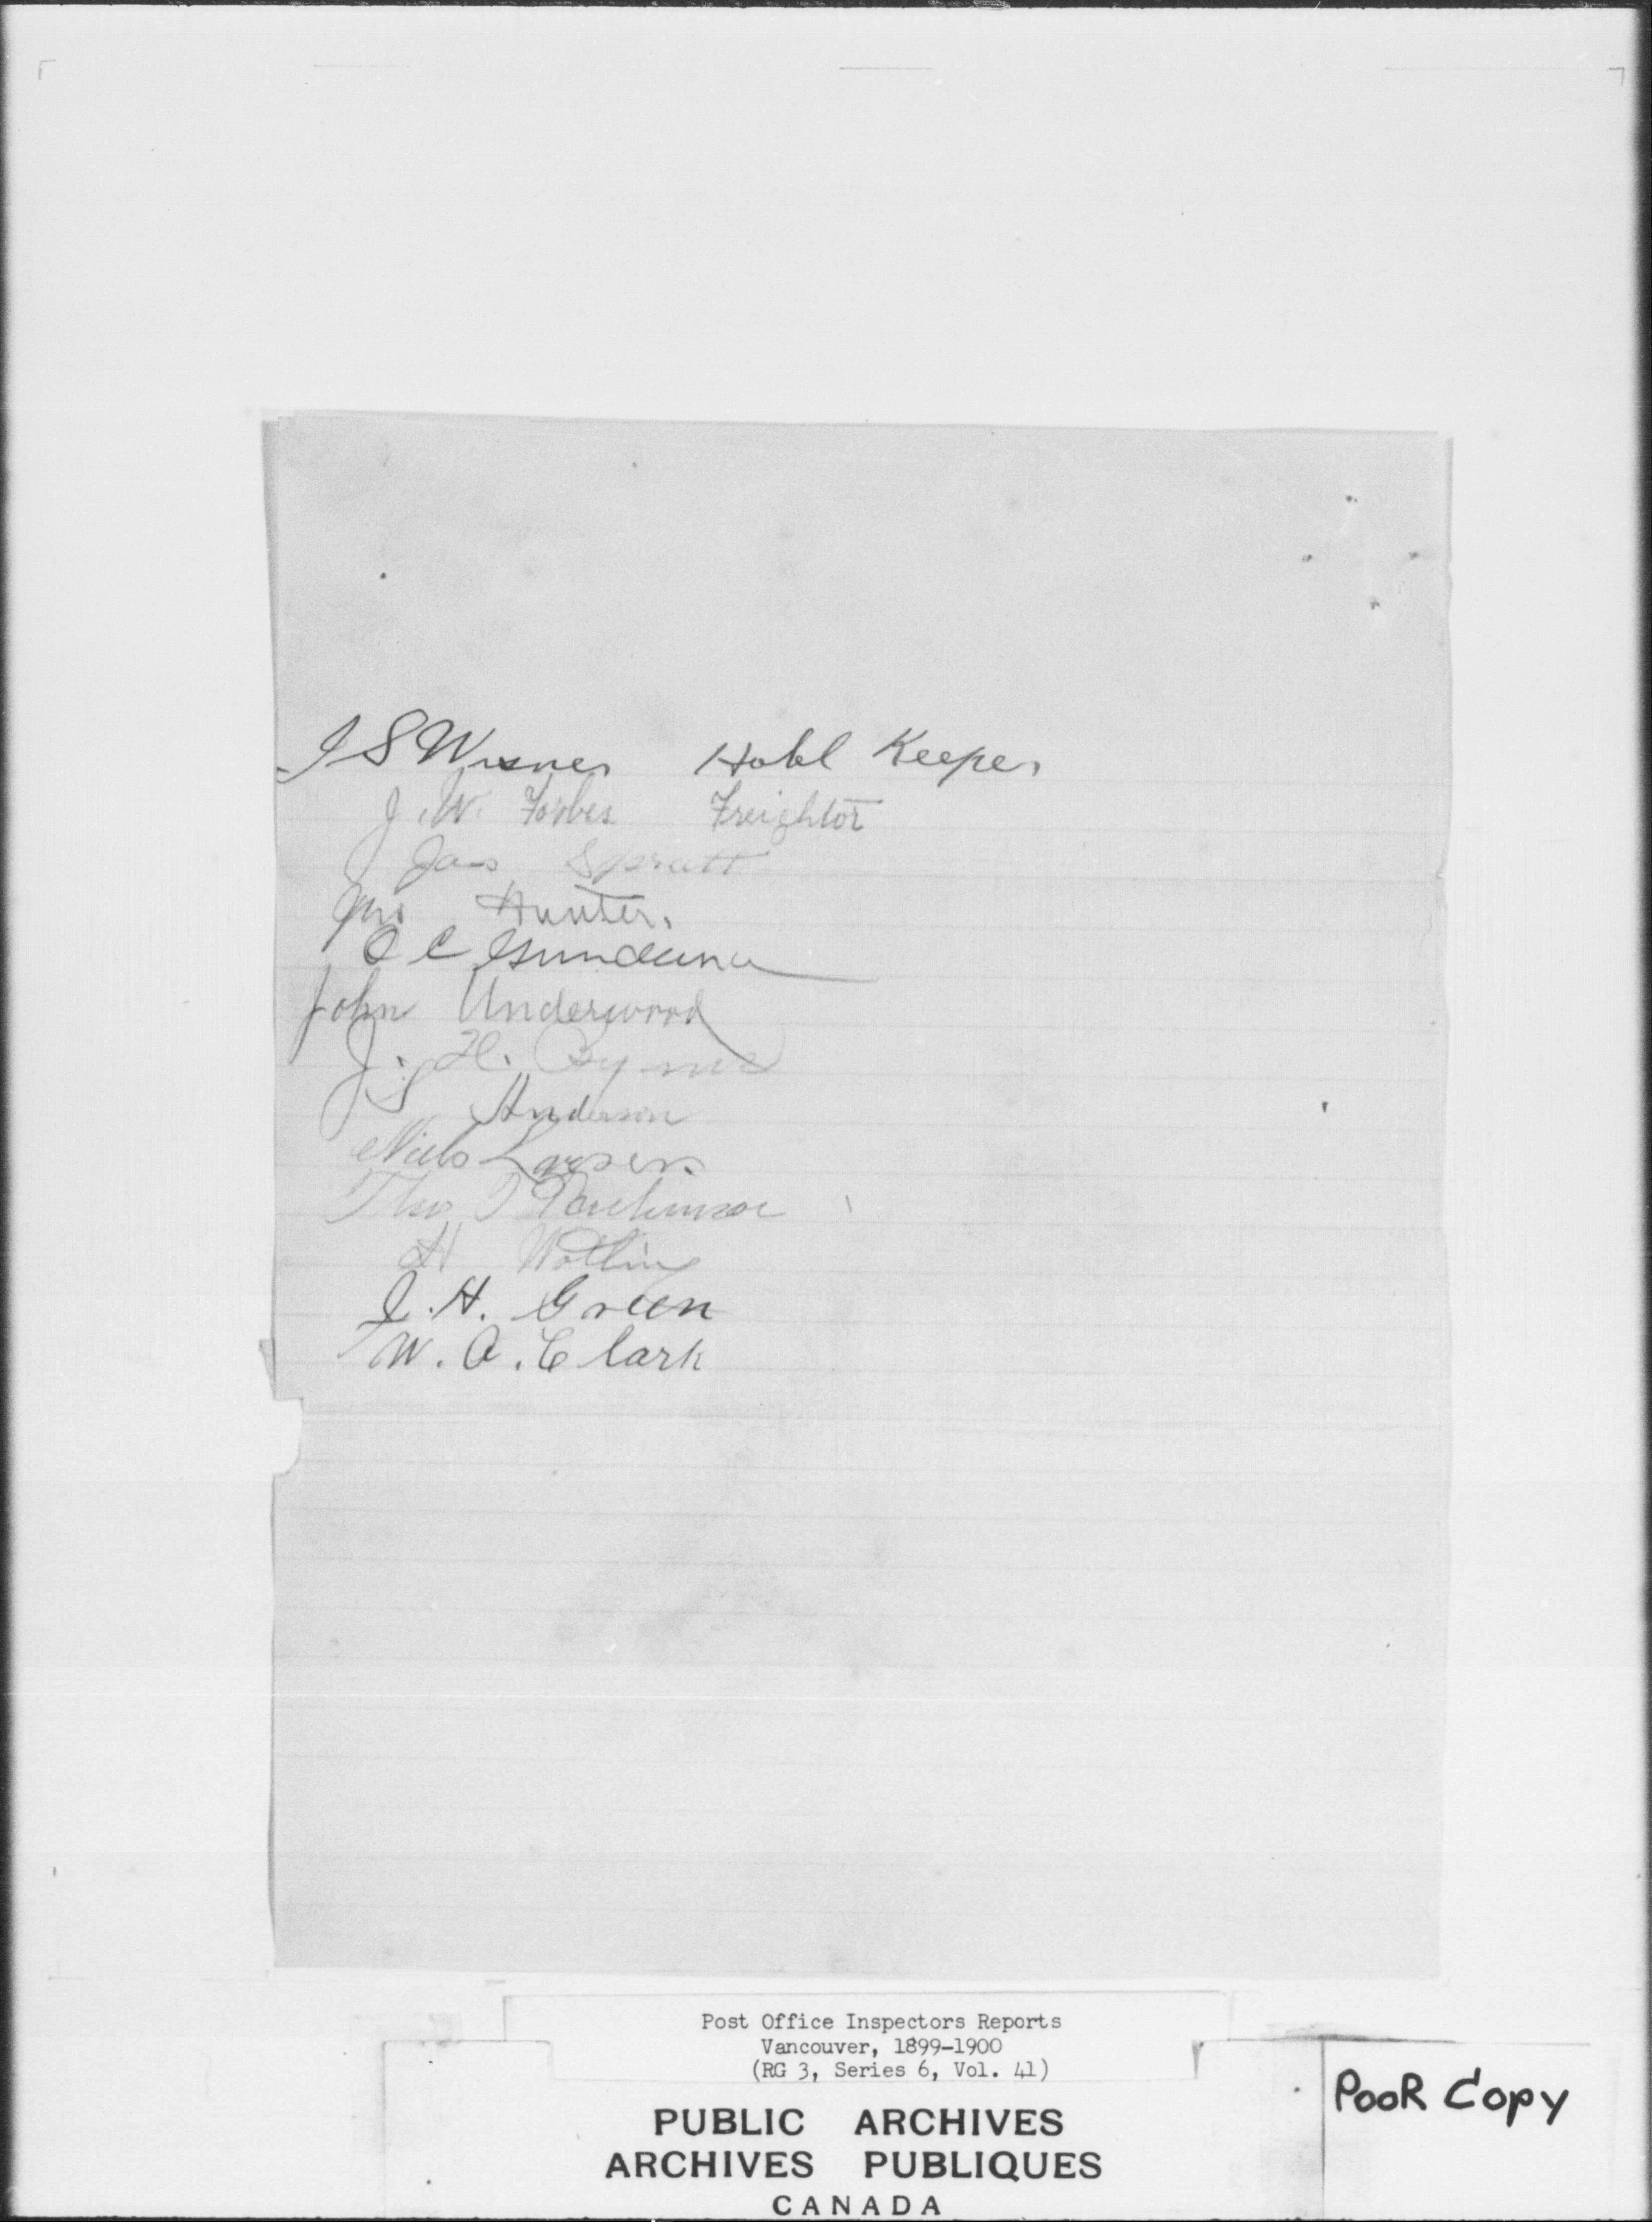 J S Wisner Hotel Keeper
J. W. Forbes Freightor
Jas Spratt
Jno Hunter.
O C
John Underwood
J. H. Byrnes
Anderson
Niels Larsen
Thos T Parkinson
H Watling
J. H. Green
W. A. Clark
Post Office Inspectors Reports
Vancouver, 1899-1900
(RG 3, Series 6, Vol. 41)
PooR Copy
PUBLIC ARCHIVES
ARCHIVES PUBLIQUES
CANADA